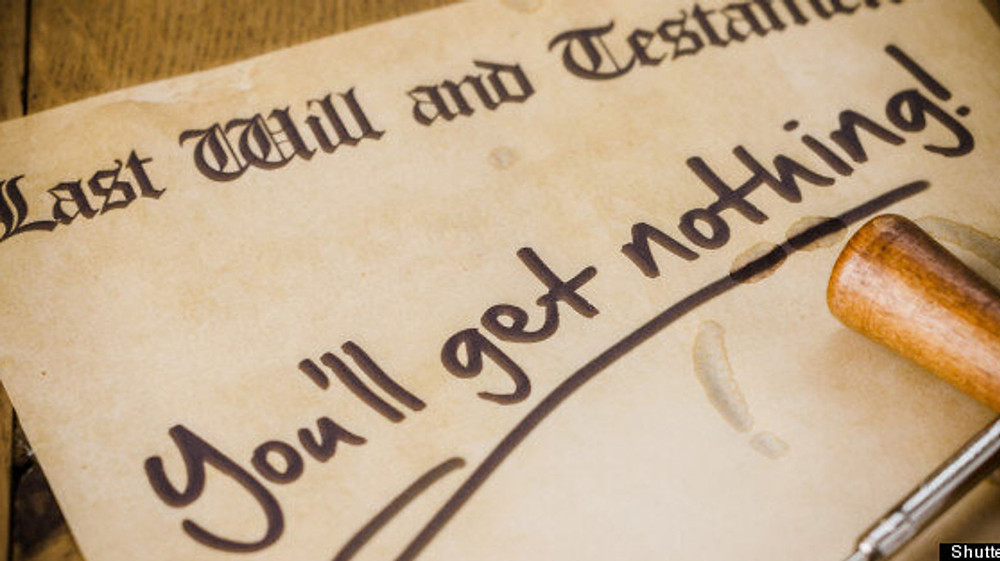 Last Will and Testamen
You'll get nothing!
Shutte